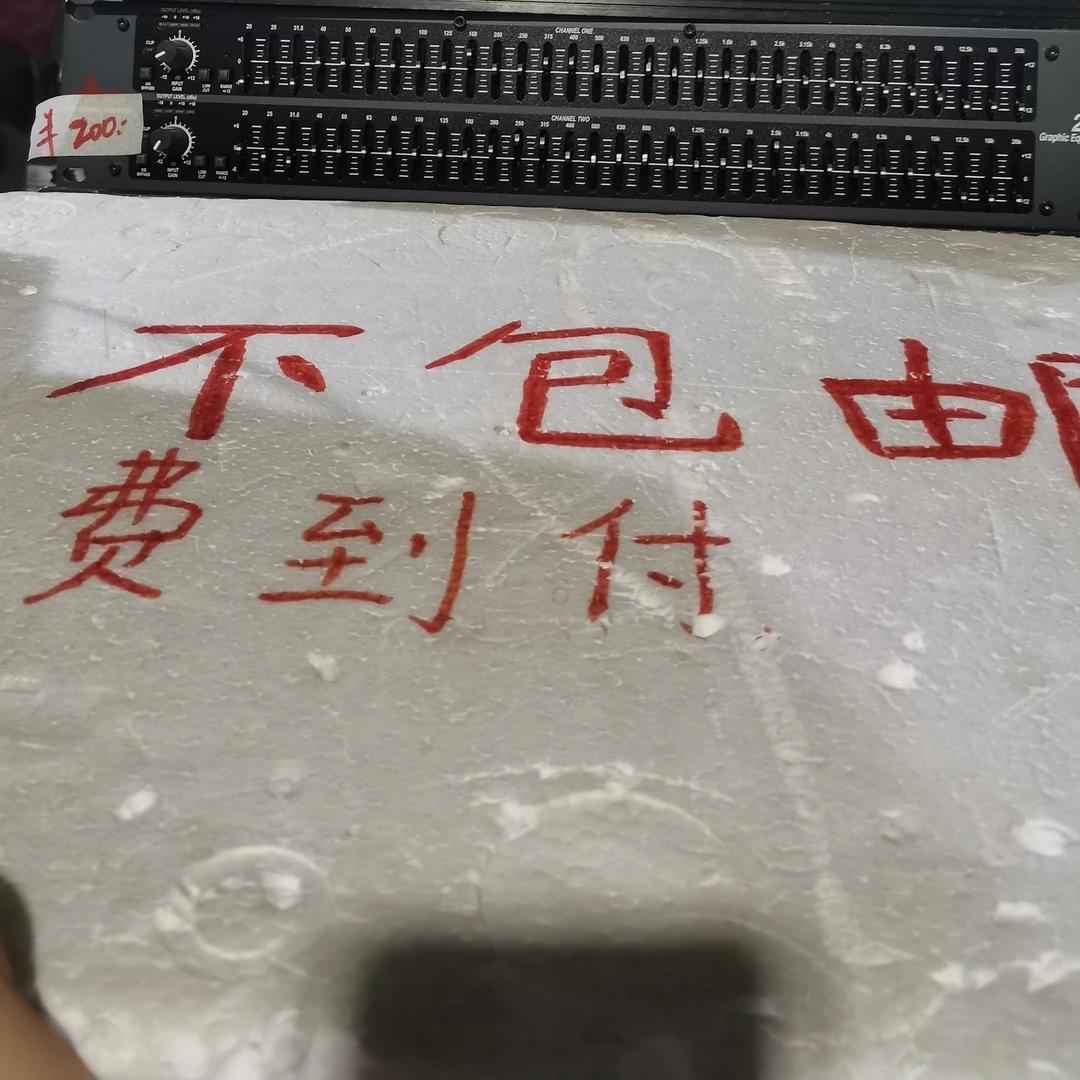 OUTPUT LEVEL (dBu)
20 25 31.5 40 50 63 80 100 125 160 200 250 315 400 500 630 800 1k 1.25k 1.6k 2k 2.5k 3.15k 4k 5k 6.3k 8k 10k 12.5k 16k 20k
CHANNEL ONE
CLIP
EQ BYPASS
INPUT GAIN
LOW CUT
RANGE
¥ 200:-
OUTPUT LEVEL (dBu)
CHANNEL TWO
20 25 31.5 40 50 63 80 100 125 160 200 250 315 400 500 630 800 1k 1.25k 1.6k 2k 2.5k 3.15k 4k 5k 6.3k 8k 10k 12.5k 16k 20k
EQ BYPASS
INPUT GAIN
LOW CUT
RANGE
Graphic
不包邮
费到付